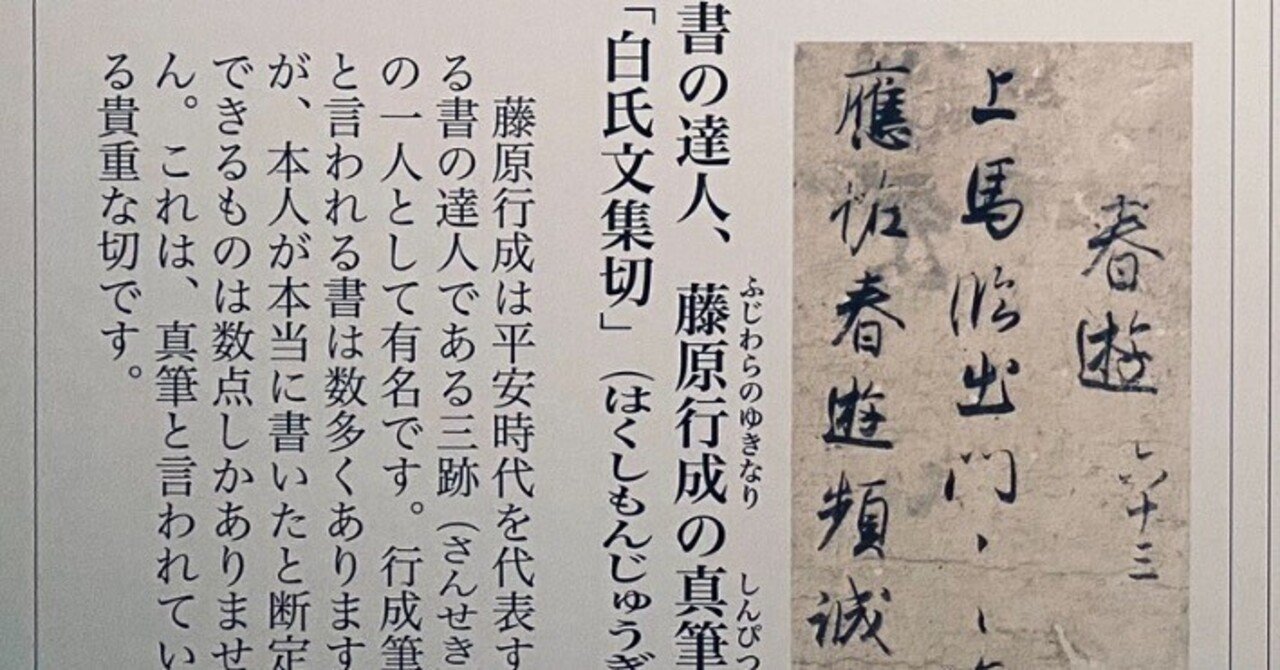 春遊 十三
上馬臨出門ゝゝ
應怪春遊頻誠
書の達人、藤原行成の真筆
ふじわらのゆきなり しんぴつ
「白氏文集切」（はくしもんじゅうぎ
藤原行成は平安時代を代表す
る書の達人である三跡（さんせき
の一人として有名です。行成筆
と言われる書は数多くあります
が、本人が本当に書いたと断定
できるものは数点しかありませ
ん。これは、真筆と言われてい
る貴重な切です。